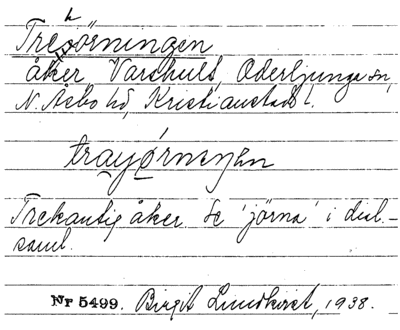 Trehörningen
åker Varshult, Oderljunga sn,
N. Åsbo hd, Kristianstads l.
trayǿrneŋen
Trekantig åker Se 'jörna' i dial.-
saml.
Nr 5499. Birgit Lundkvist, 1938.